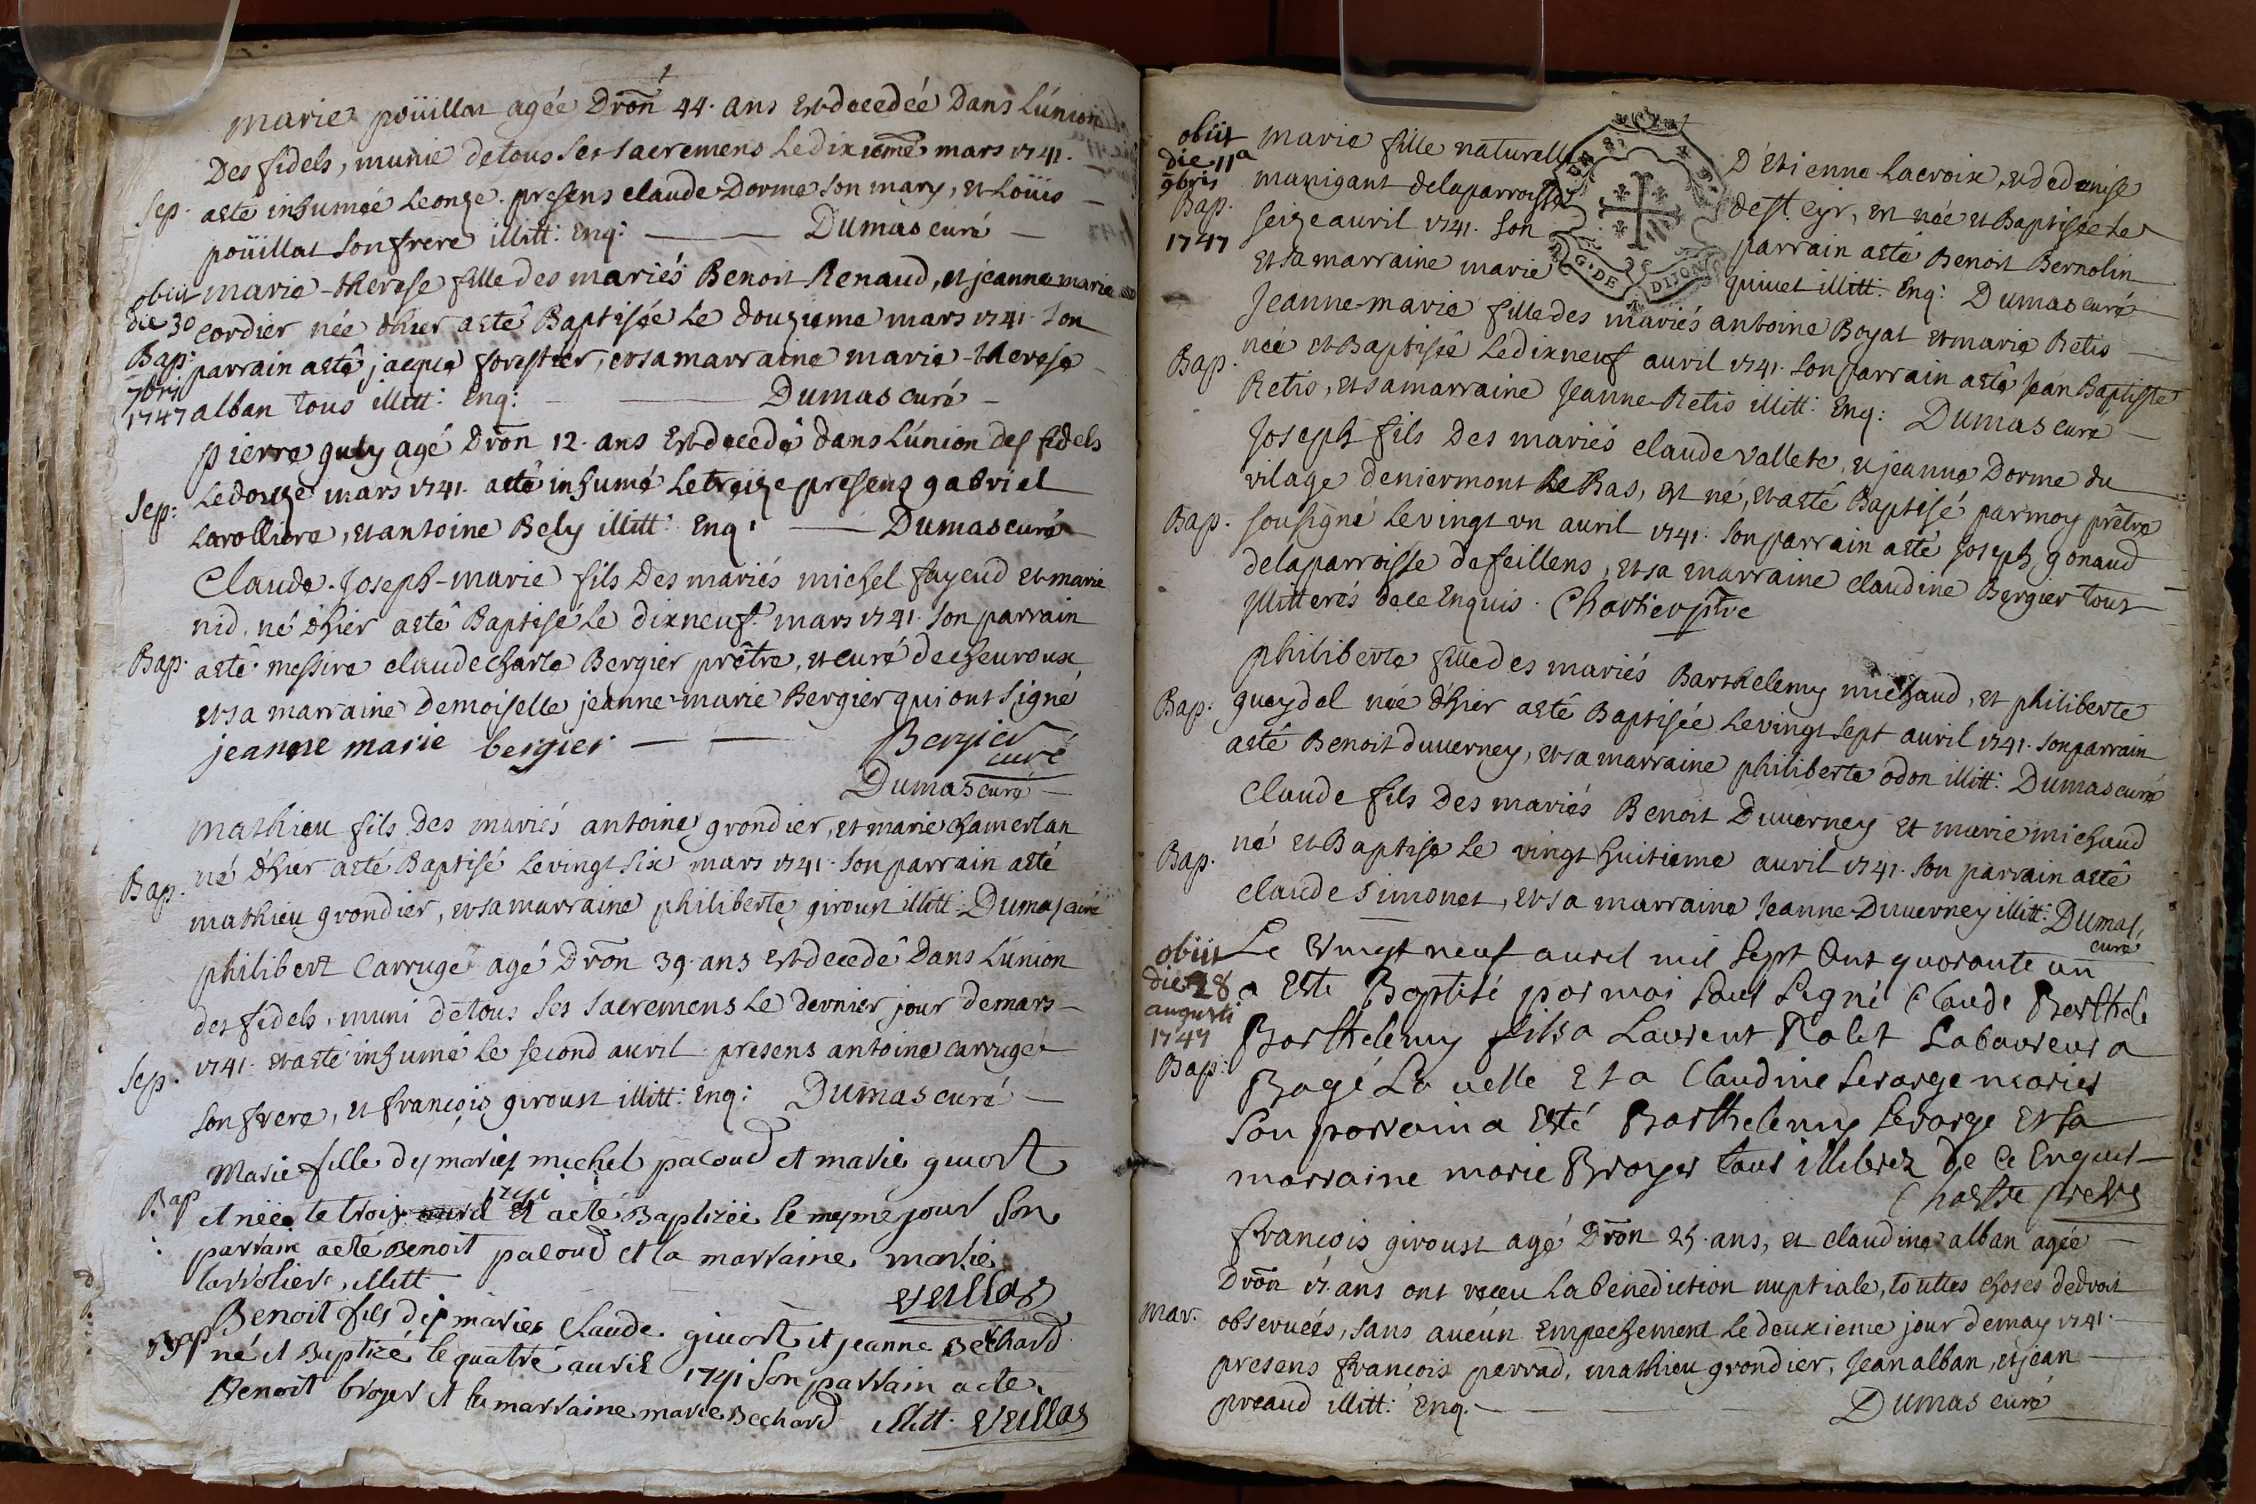 marie poüillat agée Dron 44. ans Est decedée Dans L'union
Des fidels, munie de tous Ses sacremens Le dixieme mars 1741.
Sep. a esté inhumée Le onze. presens claude Dorme son mary, et Loüis
poüillat son frere illitt: Enq: Dumas curé
obiit marie-therese fille des mariés Benoit Renaud, et jeanne marie
die 30 cordier née d'hier a esté Baptisée Le douzieme mars 1741. Son
Bap: parrain a esté jacque forestier, et sa marraine marie-therese
7bri
1747 alban tous illitt: Enq: Dumas curé
pierre guly agé Dron 12. ans Est decedé dans L'union des fidels
Sep: Le douze mars 1741. a esté inhumé Le treize presens gabriel
Larolliere, et antoine Bely illitt: Enq: Dumas curé
Claude-Joseph-marie fils Des mariés michel fayeud et marie
nid, né d'hier a esté Baptisé Le dixneuf mars 1741. Son parrain
Bap. a esté messire claude charle Bergier prêtre, et curé de chevroux
et sa marraine Demoiselle jeanne-marie Bergier qui ont signé
jeanne marie bergier Bergier
curé
Dumas curé
mathieu fils Des mariés antoine grondier, et marie chamerlan
Bap. né d'hier a esté Baptisé Le vingt six mars 1741. Son parrain a esté
mathieu grondier, et sa marraine philiberte giroust illitt: Dumas curé
philibert Carruge agé Dron 39. ans Est decedé Dans L'union
des fidels, muni de tous Ses sacremens Le dernier jour de mars
Sep. 1741. et a esté inhumé Le second avril presens antoine carruge
son frere, et françois giroust illitt: Enq: Dumas curé
Marie fille des mariés michel pacoud et marie guiort
1741
Bap et néée le trois avril et a esté Baptizée le meme jour Son
parrain a esté Benoit pacoud et la marraine marie
larroliere, illitt veillas
Benoit fils des mariés Claude guiort et jeanne Bechard
Bap né et Baptizé le quatre avril 1741 Son parrain a esté
Benoit broyer et la marraine marie Bechard illitt. veillas
obiit
die 11a
9bris
Bap.
1747
marie fille naturelle D'Etienne Lacroix, et de denise
manigant de la parroisse de st. cyr, est née et Baptisée Le
seize avril 1741. Son parrain a esté Benoit Bernolin
et sa marraine marie quivet illitt: Enq: Dumas curé
G. DE DIJON
Jeanne-marie fille des mariés antoine Boyat et marie Retis
Bap. née et Baptisée Le dixneuf avril 1741. Son parrain a esté Jean Baptiste
Retis, et sa marraine Jeanne Retis illitt: Enq: Dumas curé
Joseph fils Des mariés claude vallete, et jeanne Dorme du
vilage de niermont Le Bas, est né, et a esté Baptisé par moy prêtre
Bap. sousigné Le vingt un avril 1741. Son parrain a esté Joseph gonaud
de la parroisse de feillens, et sa marraine claudine Bergier tous
illitterés de ce Enquis. Chartier ptre
philiberte fille des mariés Barthelemy michaud, et philiberte
Bap: gueydel née d'hier a esté Baptisée Le vingt sept avril 1741. Son parrain
a esté Benoit duverney, et sa marraine philiberte odon illitt: Dumas curé
Claude fils Des mariés Benoit Duverney et marie michaud
Bap. né et Baptisé Le vingt huitieme avril 1741. Son parrain a esté
claude simonet, et sa marraine Jeanne Duverney illitt: Dumas
curé
obiit
die 28
augusti
1747
Bap:
Le Vingt neuf avril mil Sept Cent quarante un
a Esté Baptisé par moi Sous Signé Claude Barthele
Barthelemy fils a Laurent Rolet Laboureur a
Bagé La uelle Et a Claudine Serarge mariés
Son parrain a Esté Barthelemy Serarge Et Sa
marraine marie Broyer tous illiterez De Ce Enquis
Chartie prêtre
françois giroust agé Dron 25. ans, et claudine alban agée
Dron 17. ans ont receu La benediction nuptiale, touttes choses de droit
Mar. observeés, sans aucun Empechement Le deuxieme jour de may 1741.
presens françois perrad, mathieu grondier, Jean alban, et jean
preaud illitt: Enq. Dumas curé